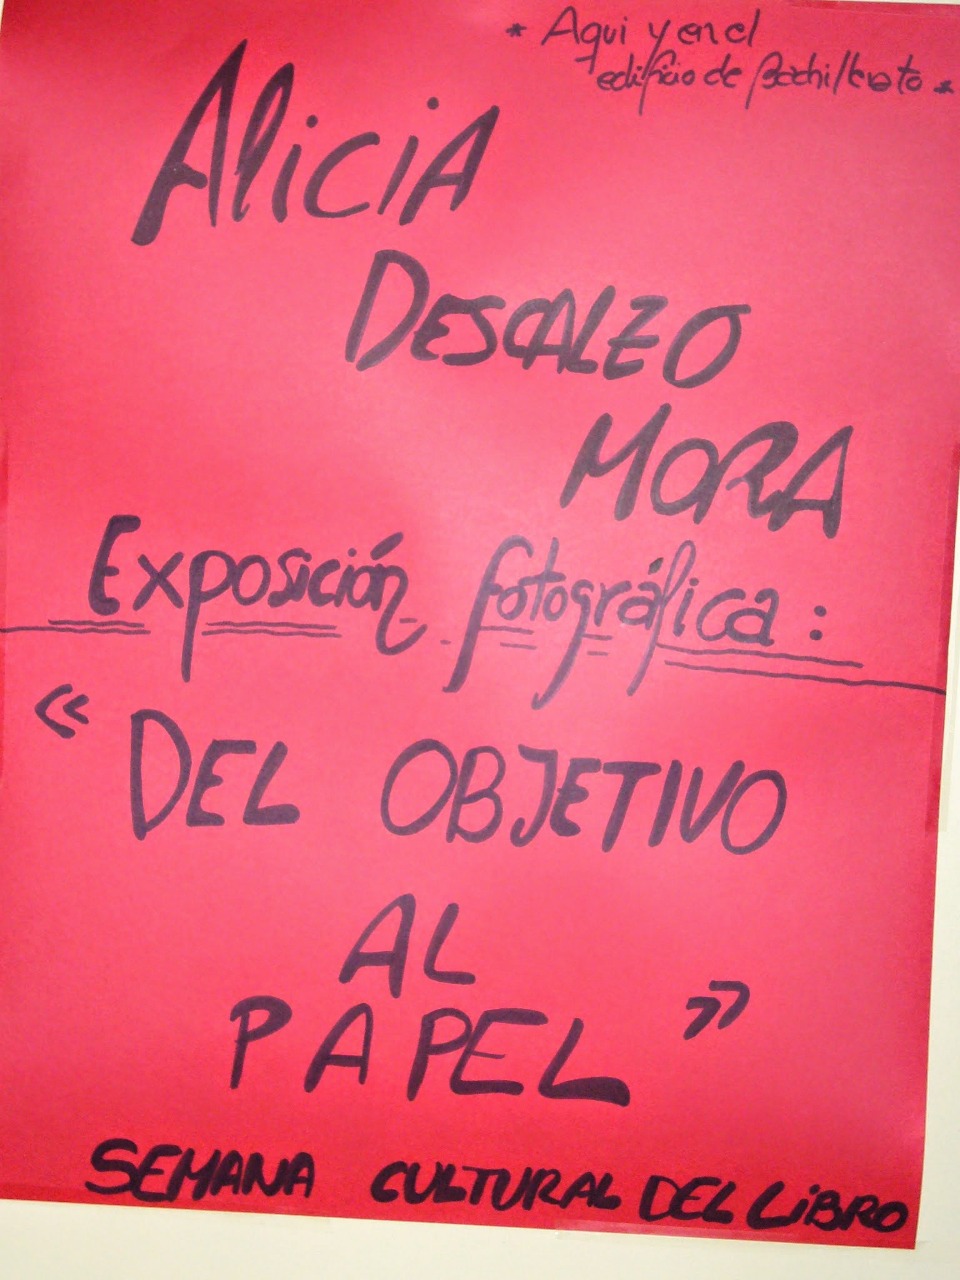 * Aqui y en el
edificio de Bachillerato *
AliciA
DESCALZO
MORA
Exposición fotográfica:
« DEL OBJETIVO
AL
PAPEL »
SEMANA CULTURAL DEL LiBRO